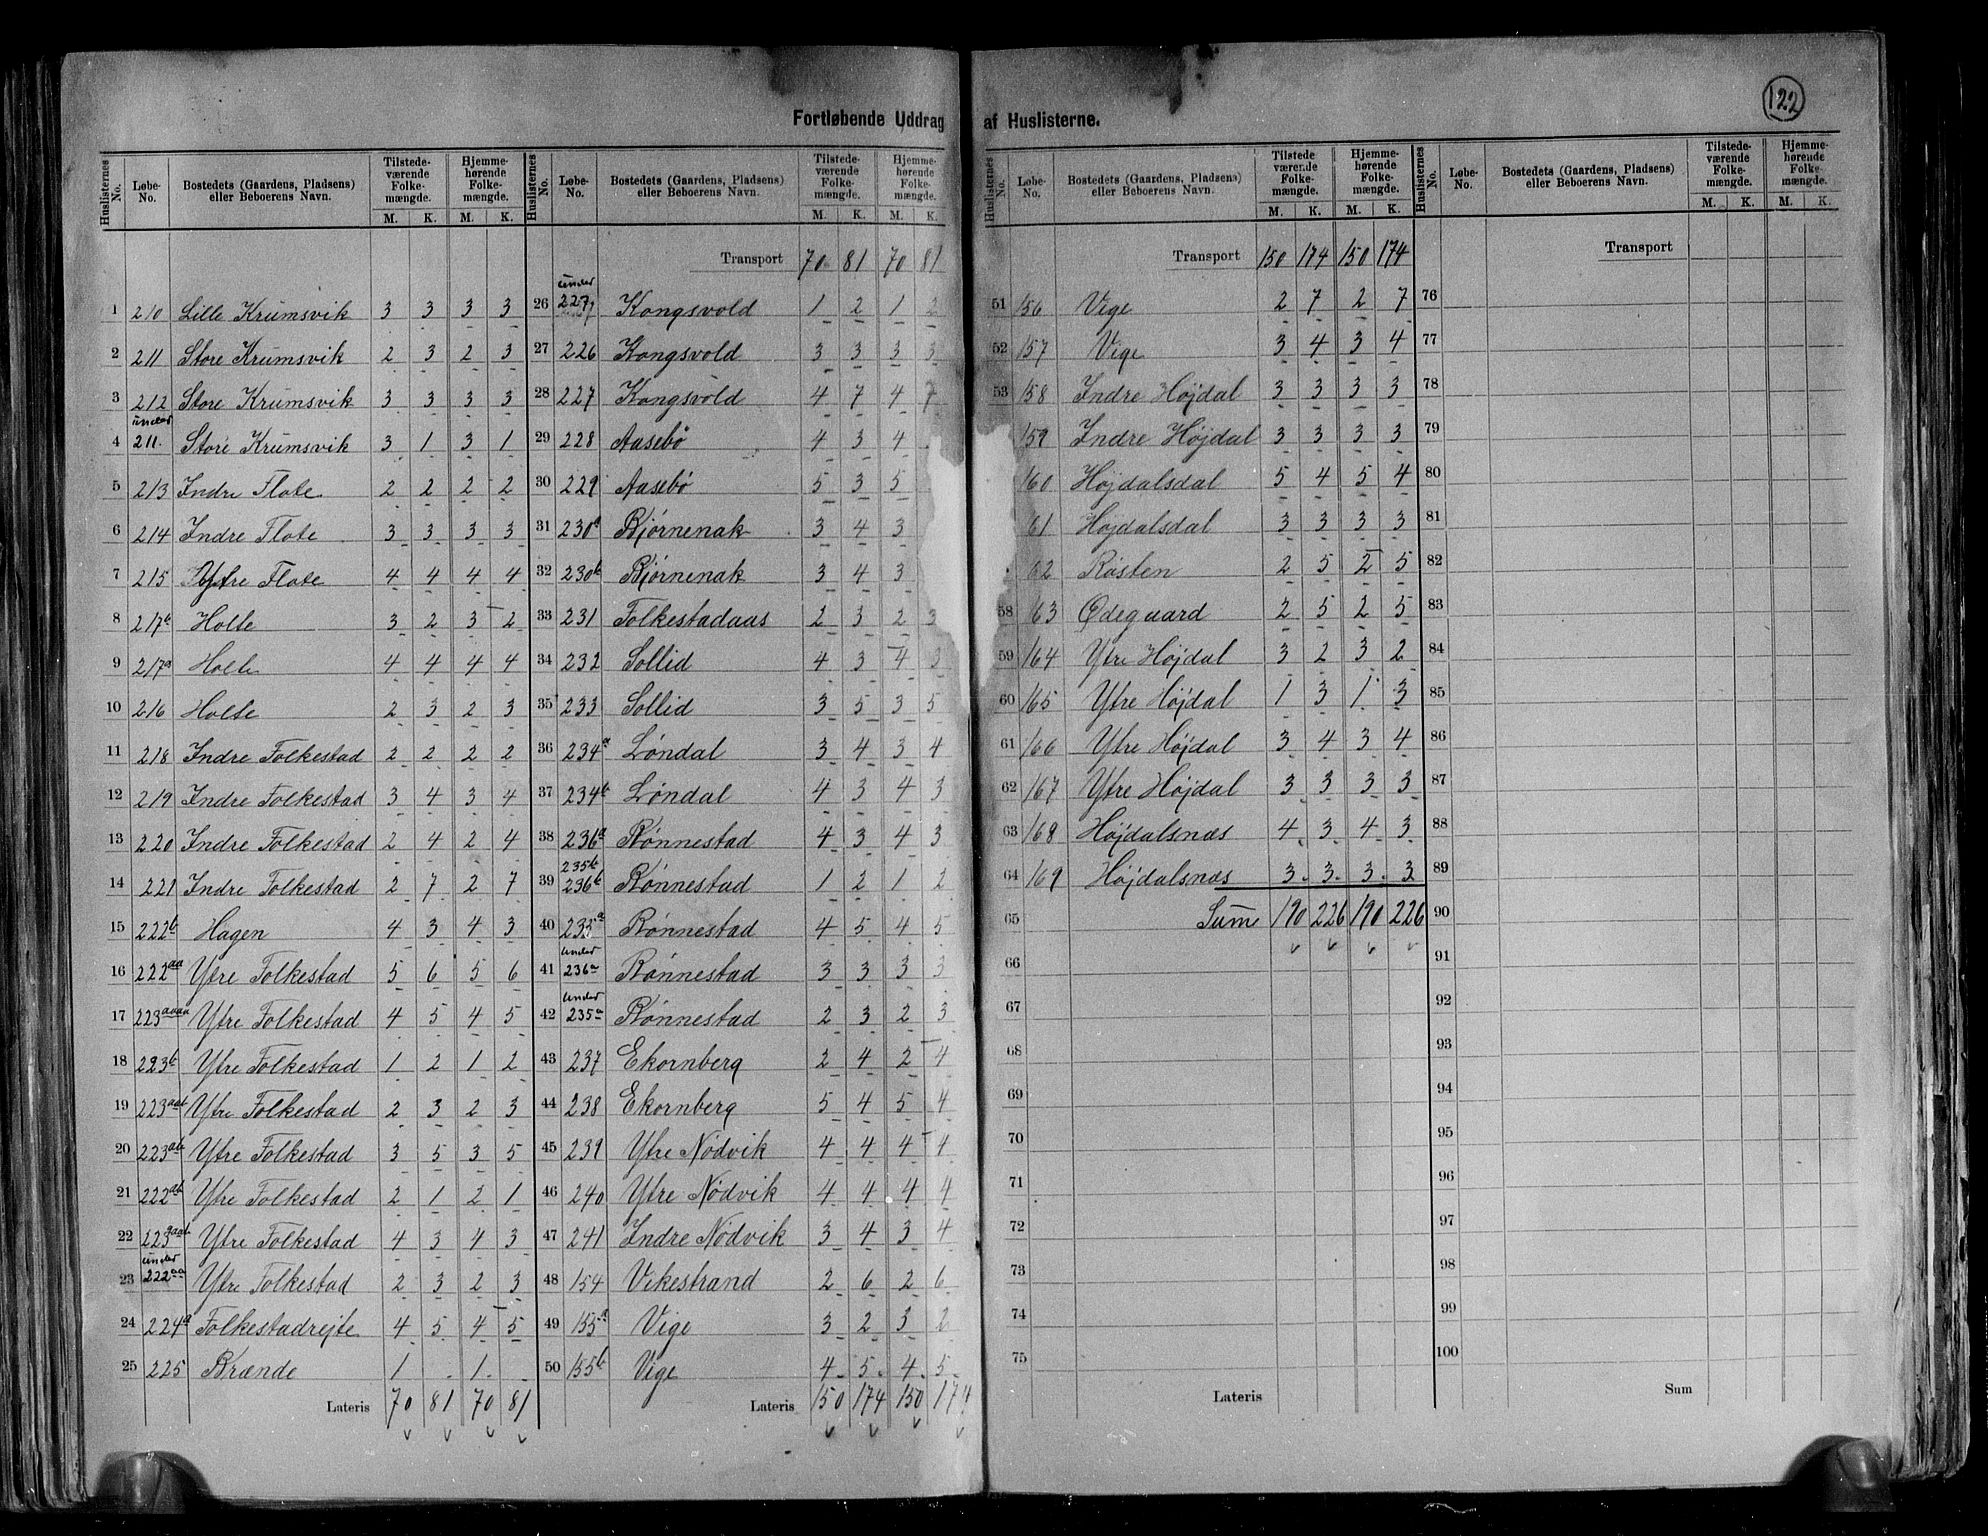 122
Fortløbende Uddrag af Huslisterne.
Huslisternes No. Løbe-No. Bostedets (Gaardens, Pladsens) eller Beboerens Navn. Tilstedeværende Folkemængde. M. K. Hjemmehørende Folkemængde. M. K.
1 210 Lille Krumsvik 3 3 3 3
2 211 Store Krumsvik 2 3 2 3
3 212 Store Krumsvik 3 3 3 3
4 under 211. Store Krumsvik 3 1 3 1
5 213 Indre Flote 2 2 2 2
6 214 Indre Flote 3 3 3 3
7 215 Ytre Flote 4 4 4 4
8 217b Holte 3 2 3 2
9 217a Holte 4 4 4 4
10 216 Holte 2 3 2 3
11 218 Indre Folkestad 2 2 2 2
12 219 Indre Folkestad 3 4 3 4
13 220 Indre Folkestad 2 4 2 4
14 221 Indre Folkestad 2 7 2 7
15 222b Hagen 4 3 4 3
16 222aa Ytre Folkestad 5 6 5 6
17 223aaaa Ytre Folkestad 4 5 4 5
18 223b Ytre Folkestad 1 2 1 2
19 223aab Ytre Folkestad 2 3 2 3
20 223ab Ytre Folkestad 3 5 3 5
21 222ab Ytre Folkestad 2 1 2 1
22 223aaab Ytre Folkestad 4 3 4 3
23 under 222aa Ytre Folkestad 2 3 2 3
24 224a Folkestadrejte 4 5 4 5
25 225 Brænde 1 . 1 .
Lateris 70 81 70 81
Huslisternes No. Løbe-No. Bostedets (Gaardens, Pladsens) eller Beboerens Navn. Tilstedeværende Folkemængde. M. K. Hjemmehørende Folkemængde. M. K.
Transport 70 81 70 81
26 under 227 Kongsvold 1 2 1 2
27 226 Kongsvold 3 3 3 3
28 227 Kongsvold 4 7 4 7
29 228 Aasebø 4 3 4
30 229 Aasebø 5 3 5
31 230a Bjørnenak 3 4 3
32 230b Bjørnenak 3 4 3
33 231 Folkestadaas 2 3 2 3
34 232 Sollid 4 3 4 3
35 233 Sollid 3 5 3 5
36 234a Løndal 3 4 3 4
37 234b Løndal 4 3 4 3
38 236a Rønnestad 4 3 4 3
39 235b 236b Rønnestad 1 2 1 2
40 235a Rønnestad 4 5 4 5
41 under 236a Rønnestad 3 3 3 3
42 under 235a Rønnestad 2 3 2 3
43 237 Ekornberg 2 4 2 4
44 238 Ekornberg 5 4 5 4
45 239 Ytre Nødvik 4 4 4 4
46 240 Ytre Nødvik 4 4 4 4
47 241 Indre Nødvik 3 4 3 4
48 154 Vikestrand 2 6 2 6
49 155a Vige 3 2 3 2
50 155b Vige 4 5 4 5
Lateris 150 174 150 174
Huslisternes No. Løbe-No. Bostedets (Gaardens, Pladsens) eller Beboerens Navn. Tilstedeværende Folkemængde. M. K. Hjemmehørende Folkemængde. M. K.
Transport 150 174 150 174
51 156 Vige 2 7 2 7
52 157 Vige 3 4 3 4
53 158 Indre Højdal 3 3 3 3
159 Indre Højdal 3 3 3 3
160 Højdalsdal 5 4 5 4
61 Højdalsdal 3 3 3 3
62 Røsten 2 5 2 5
58 63 Ødegaard 2 5 2 5
59 164 Ytre Højdal 3 2 3 2
60 165 Ytre Højdal 1 3 1 3
61 166 Ytre Højdal 3 4 3 4
62 167 Ytre Højdal 3 3 3 3
63 168 Højdalsnæs 4 3 4 3
64 169 Højdalsnæs 3 3 3 3
65 Sum 190 226 190 226
66
67
68
69
70
71
72
73
74
75
Lateris
Huslisternes No. Løbe-No. Bostedets (Gaardens, Pladsens) eller Beboerens Navn. Tilstedeværende Folkemængde. M. K. Hjemmehørende Folkemængde. M. K.
Transport
76
77
78
79
80
81
82
83
84
85
86
87
88
89
90
91
92
93
94
95
96
97
98
99
100
Sum